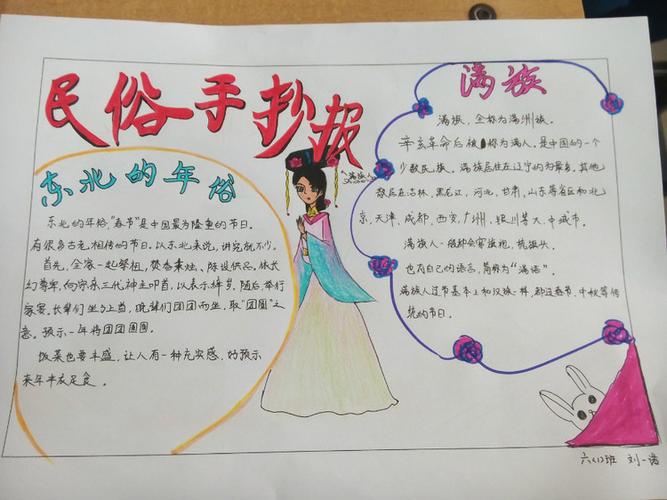 民俗手抄报
东北的年俗
东北的年俗，"春节"是中国最为隆重的节日。
有很多古老相传的节日。以东北来说，讲究就不少。
首先，全家一起祭祖，焚香秉烛、陈设供品，依长
幼尊卑，向宗亲三代，神主叩首，以表悼
随后，举行
家宴，长辈们坐上首，晚辈们团团而坐，取"团圆"之
意。预示一年将团团圆圆。
饭菜也要丰盛，让人有一种充实感，好预示
来年丰衣足食。
满族人
满族
满族，全称为满洲族。
辛亥革命后被称为满人，是中国的一个
少数民族。满族居住在辽宁的为最多，其他
散居在吉林，黑龙江，河北，甘肃，山东等省区和北
京，天津，成都，西安，广州，银川等大、中城市。
满族人一般都会穿旗袍，梳旗头。
也有自己的语言，简称为"满语"。
满族人过节基本上和汉族一样，都过春节，中秋等传
统的节日。
六(1)班 刘一诺